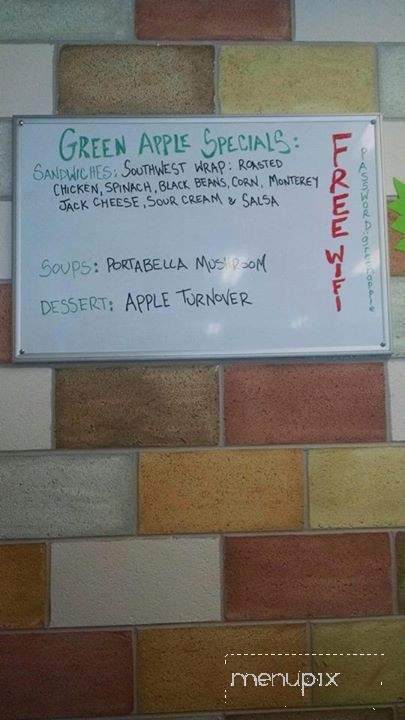 GREEN APPLE SPECIALS:
SANDWICHES: SOUTHWEST WRAP: ROASTED
CHICKEN, SPINACH, BLACK BEANS, CORN, MONTEREY
JACK CHEESE, SOUR CREAM & SALSA
SOUPS: PORTABELLA MUSHROOM
DESSERT: APPLE TURNOVER
FREE WIFI
PASSWORD: greenapple
menupix